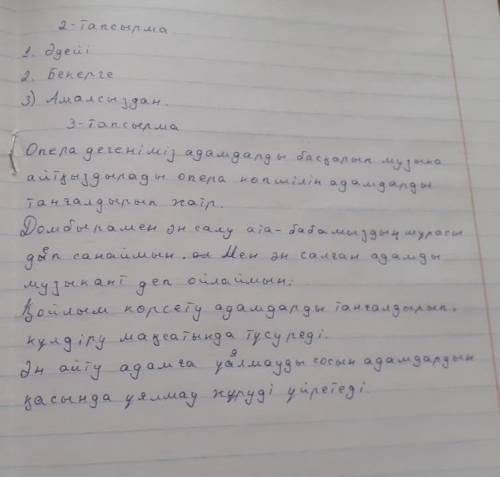 2-тапсырма
1. Әдейі
2. Бекерге
3) Амалсыздан.
3-тапсырма
Опера дегеніміз адамдарды басқарып музыка
айтқыздырады опера көпшілік адамдарды
таңғалдырып жатр.
Домбырамен ән салу ата-бабамыздың мұрасы
деп санаймын. Мен ән салған адамды
музыкант деп ойлаймын.
Қойлым көрсету адамдарды таңғалдырып.
күлдіру мақсатында түсуреді.
Ән айту адамға ұялмауды сосын адамдардың
қасында ұялмау жүруді үйретеді